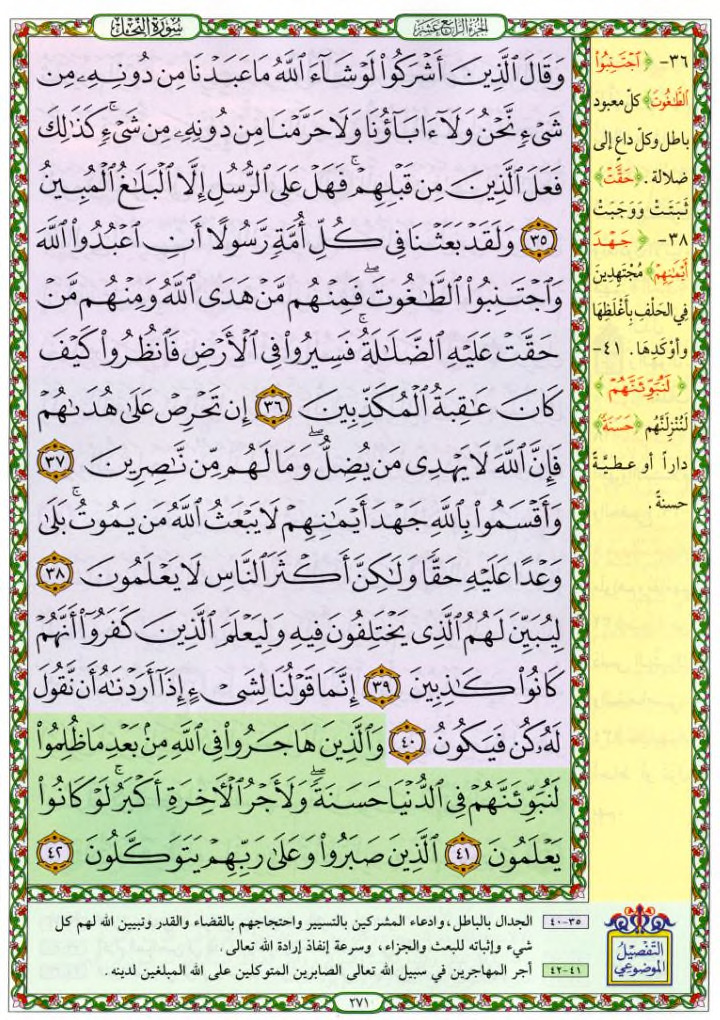 سُورَةُ النَّحْلِ
الجُزءُ الرَّابِعَ عَشَرَ
وَقَالَ ٱلَّذِينَ أَشْرَكُوا۟ لَوْ شَآءَ ٱللَّهُ مَا عَبَدْنَا مِن دُونِهِۦ مِن
شَىْءٍ نَّحْنُ وَلَآ ءَابَآؤُنَا وَلَا حَرَّمْنَا مِن دُونِهِۦ مِن شَىْءٍ ۚ كَذَٰلِكَ
فَعَلَ ٱلَّذِينَ مِن قَبْلِهِمْ ۚ فَهَلْ عَلَى ٱلرُّسُلِ إِلَّا ٱلْبَلَٰغُ ٱلْمُبِينُ
٣٥ وَلَقَدْ بَعَثْنَا فِى كُلِّ أُمَّةٍ رَّسُولًا أَنِ ٱعْبُدُوا۟ ٱللَّهَ
وَٱجْتَنِبُوا۟ ٱلطَّٰغُوتَ ۖ فَمِنْهُم مَّنْ هَدَى ٱللَّهُ وَمِنْهُم مَّنْ
حَقَّتْ عَلَيْهِ ٱلضَّلَٰلَةُ ۚ فَسِيرُوا۟ فِى ٱلْأَرْضِ فَٱنظُرُوا۟ كَيْفَ
كَانَ عَٰقِبَةُ ٱلْمُكَذِّبِينَ ٣٦ إِن تَحْرِصْ عَلَىٰ هُدَىٰهُمْ
فَإِنَّ ٱللَّهَ لَا يَهْدِى مَن يُضِلُّ ۖ وَمَا لَهُم مِّن نَّٰصِرِينَ ٣٧
وَأَقْسَمُوا۟ بِٱللَّهِ جَهْدَ أَيْمَٰنِهِمْ لَا يَبْعَثُ ٱللَّهُ مَن يَمُوتُ ۚ بَلَىٰ
وَعْدًا عَلَيْهِ حَقًّا وَلَٰكِنَّ أَكْثَرَ ٱلنَّاسِ لَا يَعْلَمُونَ ٣٨
لِيُبَيِّنَ لَهُمُ ٱلَّذِى يَخْتَلِفُونَ فِيهِ وَلِيَعْلَمَ ٱلَّذِينَ كَفَرُوٓا۟ أَنَّهُمْ
كَانُوا۟ كَٰذِبِينَ ٣٩ إِنَّمَا قَوْلُنَا لِشَىْءٍ إِذَآ أَرَدْنَٰهُ أَن نَّقُولَ
لَهُۥ كُن فَيَكُونُ ٤٠ وَٱلَّذِينَ هَاجَرُوا۟ فِى ٱللَّهِ مِنۢ بَعْدِ مَا ظُلِمُوا۟
لَنُبَوِّئَنَّهُمْ فِى ٱلدُّنْيَا حَسَنَةً ۖ وَلَأَجْرُ ٱلْأَخِرَةِ أَكْبَرُ ۚ لَوْ كَانُوا۟
يَعْلَمُونَ ٤١ ٱلَّذِينَ صَبَرُوا۟ وَعَلَىٰ رَبِّهِمْ يَتَوَكَّلُونَ ٤٢
٣٦- ﴿ٱجْتَنِبُوا۟
ٱلطَّٰغُوتَ﴾ كلّ معبود
باطل وكلّ داعٍ إلى
ضلالة. ﴿حَقَّتْ﴾
ثَبَتَتْ وَوَجَبَتْ
٣٨- ﴿جَهْدَ
أَيْمَٰنِهِمْ﴾ مُجْتَهِدِينَ
فِي الحَلْفِ بِأَغْلَظِهَا
وأَوْكَدِهَا. ٤١-
﴿لَنُبَوِّئَنَّهُمْ﴾
لَنُنْزِلَنَّهُم ﴿حَسَنَةً﴾
داراً أو عطيّةً
حسنةً.
التَّفْصِيلُ
المَوْضُوعِي
٣٥-٤٠ الجدال بالباطل، وادعاء المشركين بالتسيير واحتجاجهم بالقضاء والقدر وتبيين الله لهم كل
شيء وإثباته للبعث والجزاء، وسرعة إنفاذ إرادة الله تعالى.
٤١-٤٢ أجر المهاجرين في سبيل الله تعالى الصابرين المتوكلين على الله المبلغين لدينه.
٢٧١